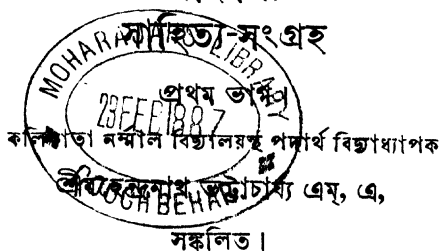 সাহিত্য-সংগ্রহ
প্রথম ভাগ।
কলিকাতা নর্ম্মাল বিদ্যালয়স্থ পদার্থ বিদ্যাধ্যাপক
শ্রীমহেন্দ্রনাথ ভট্টাচার্য্য এম্, এ,
সঙ্কলিত।
LIBRARY
23 FEB 1887
COOCH BEHAR